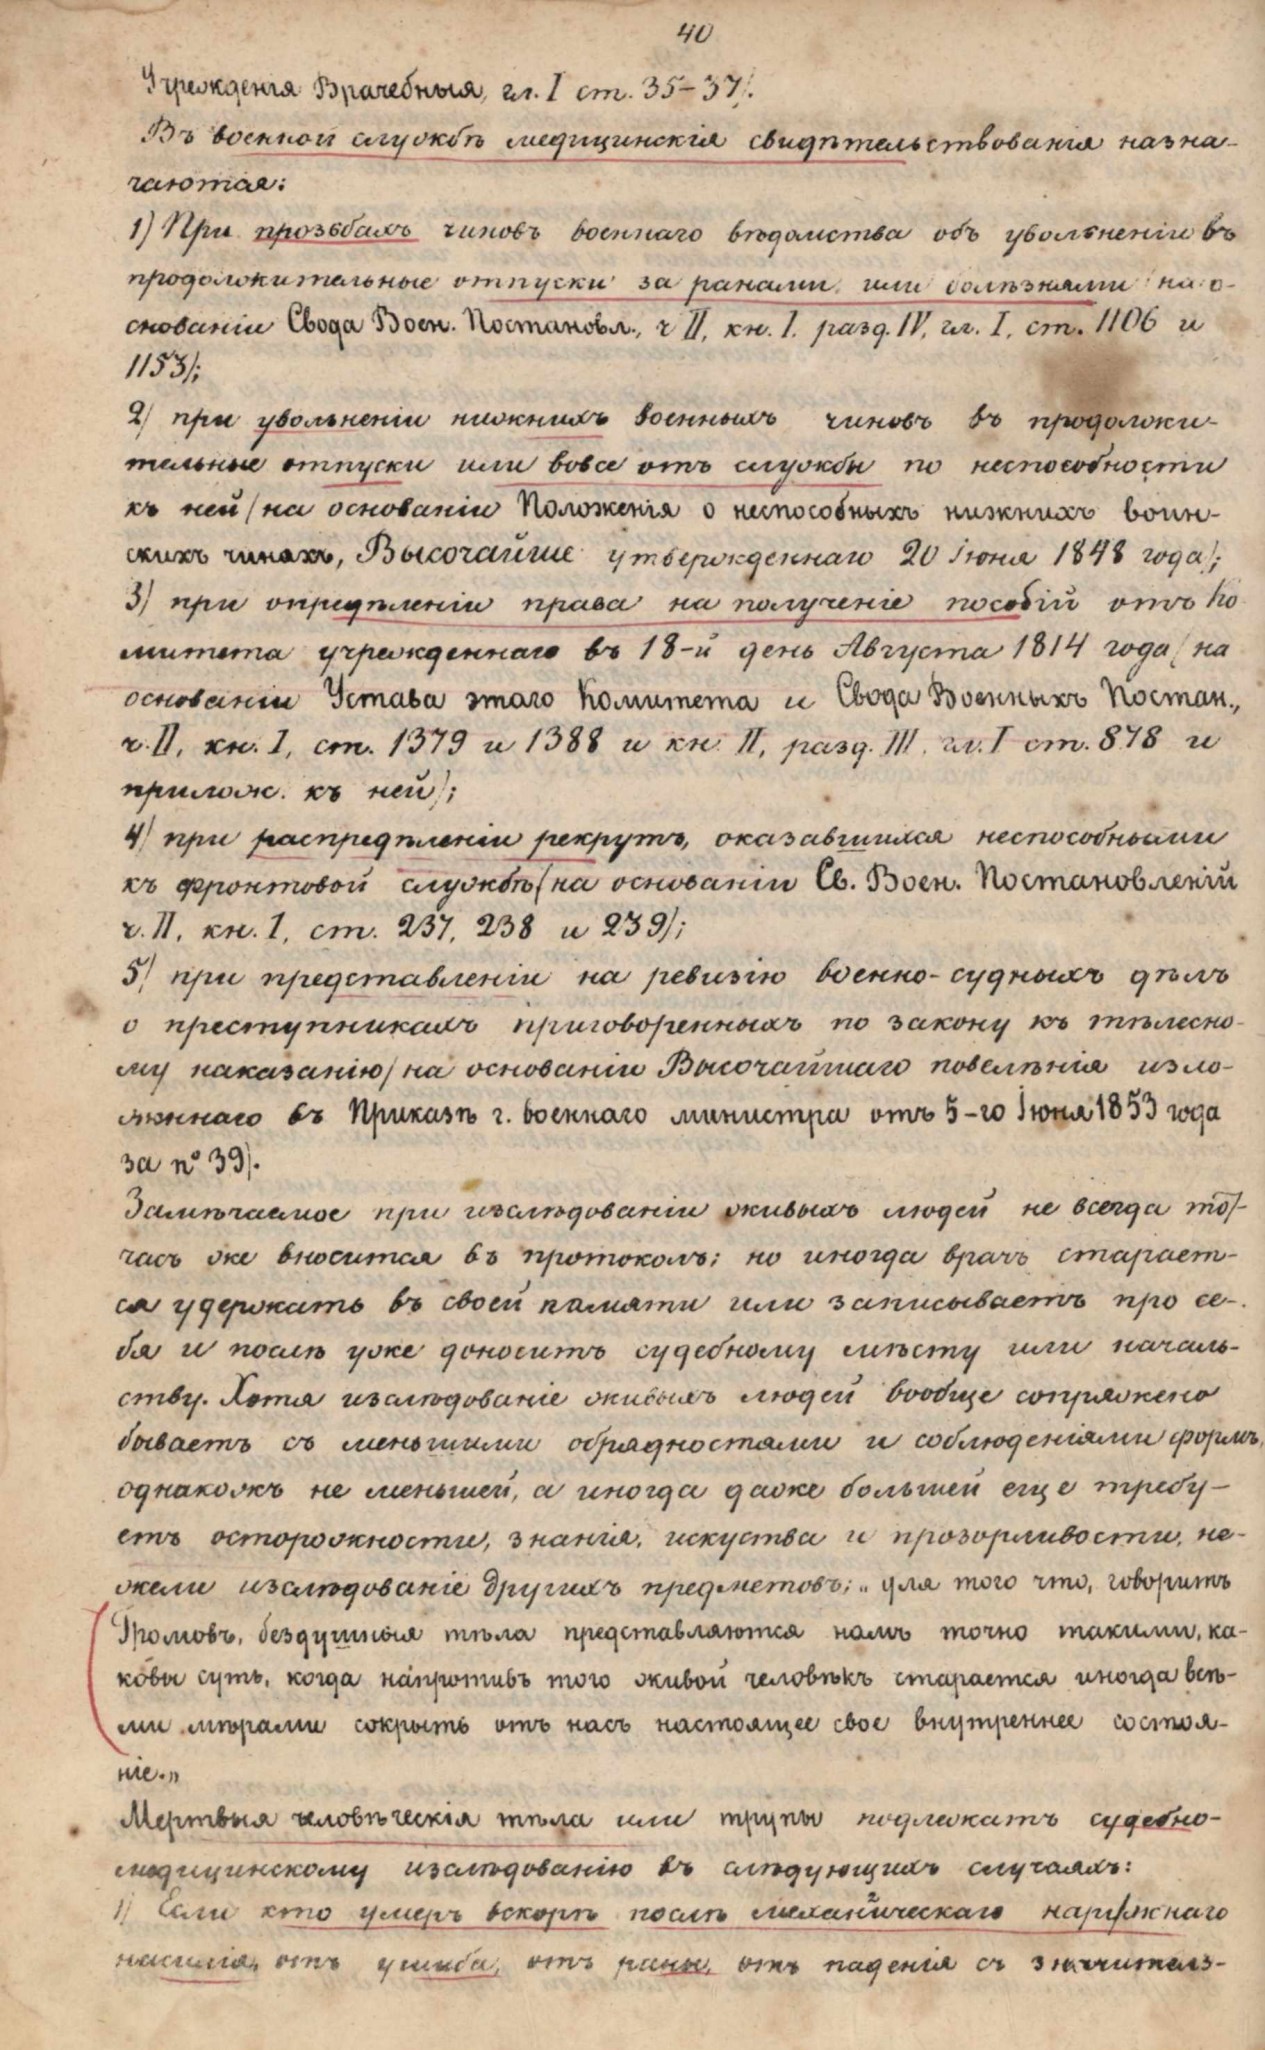 40
Учрежденія Врачебныя, гл. I ст. 35–37/.
Въ военной службѣ медицинскія свидѣтельствованія назна-
чаются:
1) При прозьбахъ чиновъ военнаго вѣдомства объ увольненіи въ
продолжительные отпуски за ранами или болѣзнями (на о-
снованіи Свода Воен. Постановл., ч II, кн. I. разд. IV, гл. I, ст. 1106 и
1153);
2) при увольненіи нижнихъ военныхъ чиновъ въ продолжи-
тельные отпуски или вовсе отъ службы по неспособности
къ ней (на основаніи Положенія о неспособныхъ нижнихъ воин-
скихъ чинахъ, Высочайше утвержденнаго 20 Іюня 1848 года);
3) при опредѣленіи права на полученіе пособій отъ Ко
митета учрежденнаго въ 18-й день Августа 1814 года (на
основаніи Устава этаго Комитета и Свода Военныхъ Постан.,
ч. II, кн. I, ст. 1379 и 1388 и кн. II, разд. III, гл. I ст. 878 и
прилож. къ ней);
4) при распредѣленіи рекрутъ, оказавшихся неспособными
къ фронтовой службѣ (на основаніи Св. Воен. Постановленій
ч. II, кн. I, ст. 237, 238 и 239);
5) при представленіи на ревизію военно-судныхъ дѣлъ
о преступникахъ приговоренныхъ по закону къ тѣлесно-
му наказанію (на основаніи Высочайшаго повелѣнія изло-
женнаго въ Приказѣ г. военнаго министра отъ 5-го Іюня 1853 года
за № 39).
Замѣчаемое при изслѣдованіи живыхъ людей не всегда тот-
часъ же вносится въ протоколъ; но иногда врачъ старает-
ся удержать въ своей памяти или записываетъ про се-
бя и послѣ уже доноситъ судебному мѣсту или началь-
ству. Хотя изслѣдованіе живыхъ людей вообще сопряжено
бываетъ съ меньшими обрядностями и соблюденіями формъ,
однакожъ не меньшей, а иногда даже большей еще требу-
етъ осторожности, знанія, искуства и прозорливости, не-
жели изслѣдованіе других предметовъ; „для того что, говоритъ
Громовъ, бездушныя тѣла представляются намъ точно такими, ка-
ковы суть, когда напротивъ того живой человѣкъ старается иногда всѣ-
ми мѣрами сокрыть отъ насъ настоящее свое внутреннее состоя-
ніе.„
Мертвыя человѣческія тѣла или трупы подлежатъ судебно-
медицинскому изслѣдованію въ слѣдующихъ случаяхъ:
1) Если кто умеръ вскорѣ послѣ механическаго наружнаго
насилія, отъ ушиба, отъ раны, отъ паденія съ значитель-